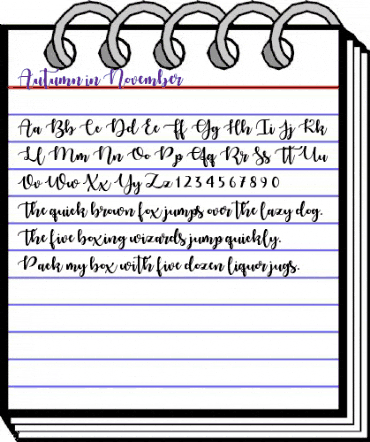 Autumn in November
Aa Bb Cc Dd Ee Ff Gg Hh Ii Jj Kk
Ll Mm Nn Oo Pp Qq Rr Ss Tt Uu
Vv Ww Xx Yy Zz 1 2 3 4 5 6 7 8 9 0
The quick brown fox jumps over the lazy dog.
The five boxing wizards jump quickly.
Pack my box with five dozen liquor jugs.